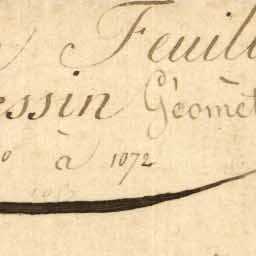 Feuill
essin Géomèt
o à 1072